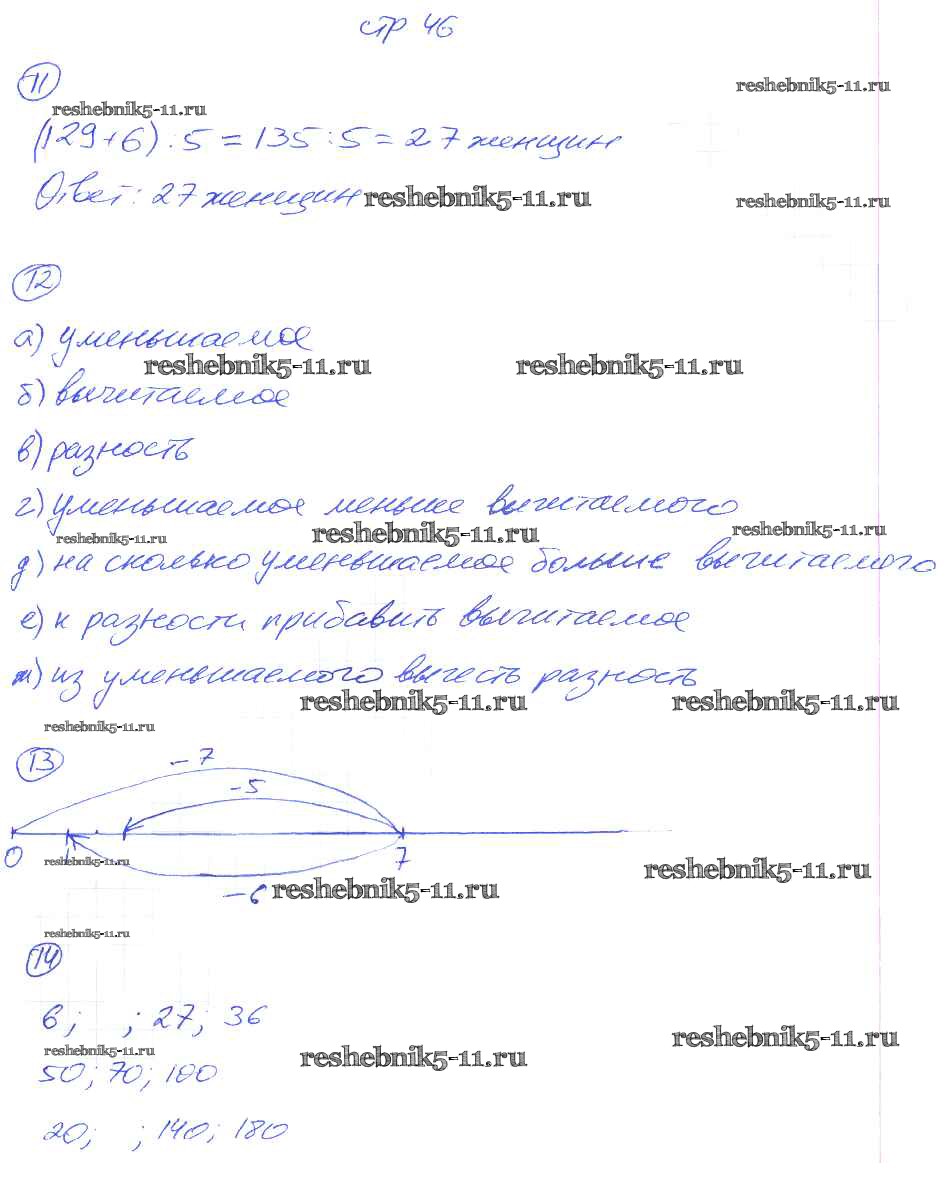 стр 46
11
reshebnik5-11.ru
reshebnik5-11.ru
(129+6):5=135:5=27 женщин
Ответ: 27 женщин reshebnik5-11.ru reshebnik5-11.ru
12
а) уменьшаемое
reshebnik5-11.ru reshebnik5-11.ru
б) вычитаемое
в) разность
г) уменьшаемое меньше вычитаемого
reshebnik5-11.ru reshebnik5-11.ru reshebnik5-11.ru
д) на сколько уменьшаемое больше вычитаемого
е) к разности прибавить вычитаемое
ж) из уменьшаемого вычесть разность
reshebnik5-11.ru reshebnik5-11.ru
reshebnik5-11.ru
13
-7
-5
0 1 7
reshebnik5-11.ru reshebnik5-11.ru
-6 reshebnik5-11.ru
reshebnik5-11.ru
14
6; ; 27; 36
reshebnik5-11.ru reshebnik5-11.ru reshebnik5-11.ru
50; 70; 100
20; ; 140; 180